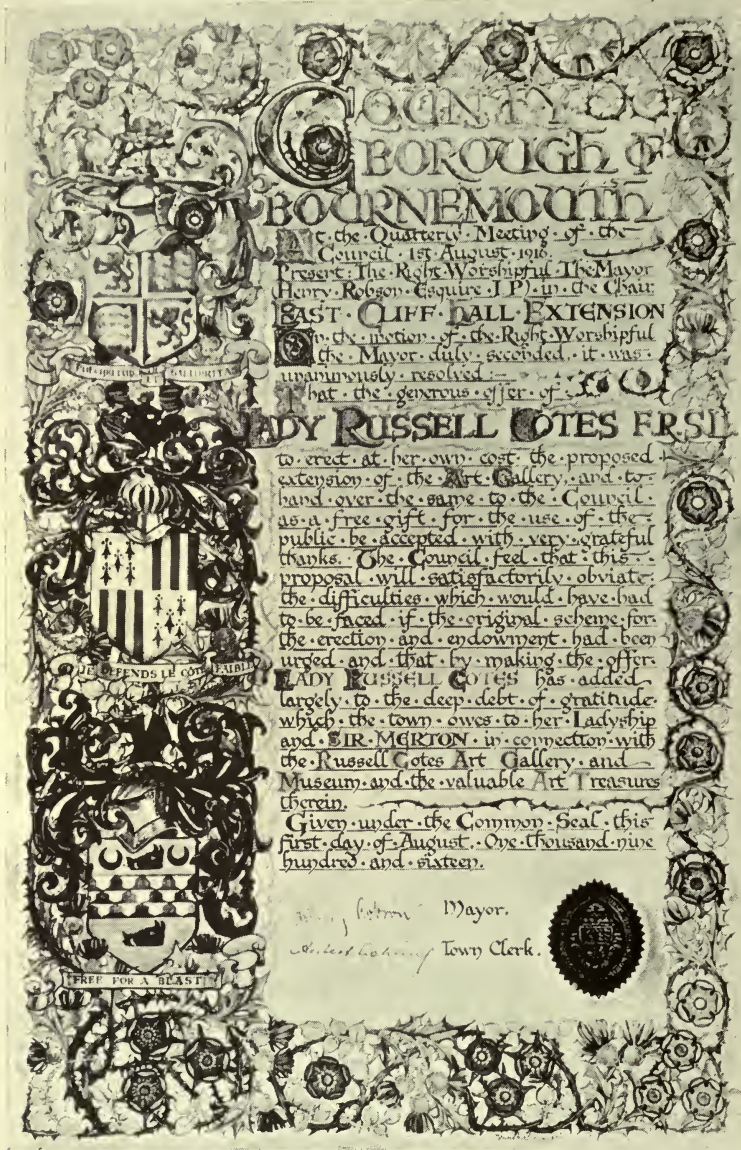 COUNTY
BOROUGH OF
BOURNEMOUTH
At·the·Quarterly·Meeting·of·the
Council·1st·August·1916
Present·The·Right·Worshipful·The Mayor
(Henry·Robson·Esquire·J P)·in·the·Chair
EAST·CLIFF·HALL·EXTENSION
On·the·motion·of·the·Right·Worshipful
the·Mayor·duly·seconded·it·was·
unanimously·resolved:—
That·the·generous·offer·of
LADY RUSSELL COTES F.R.S.L.
to·erect·at·her·own·cost·the·proposed
extension·of·the·Art·Gallery·and·to·
hand·over·the·same·to·the·Council·
as·a·free·gift·for·the·use·of·the·
public·be·accepted·with·very·grateful
thanks.·The·Council·feel·that·this·
proposal·will·satisfactorily·obviate·
the·difficulties·which·would·have·had
to·be·faced·if·the·original·scheme·for·
the·erection·and·endowment·had·been
urged·and·that·by·making·the·offer·
LADY RUSSELL COTES has·added
largely·to·the·deep·debt·of·gratitude·
which·the·town·owes·to·her·Ladyship
and·SIR·MERTON·in·connection·with
the·Russell Cotes Art Gallery·and
Museum·and·the·valuable Art Treasures
therein.
Given·under·the·Common·Seal·this
first·day·of·August.·One·thousand·nine
hundred·and·sixteen.
Mayor.
Town Clerk.
PULCHRITUDO ET SALUBRITAS
JE DEFENDS LE COTE FAIBLE
FREE FOR A BLAST